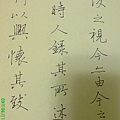 後之視今亦由今之
時人錄其所述
以興懷其致